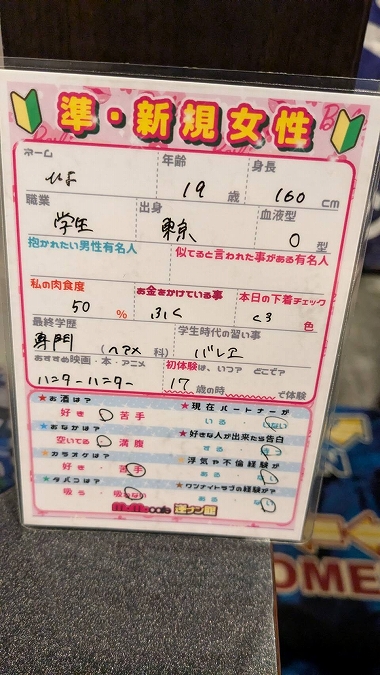 準・新規女性
ネーム
年齢
身長
19歳
160cm
職業
出身
血液型
学生
東京
O型
抱かれたい男性有名人
似てると言われた事がある有名人
私の肉食度
お金をかけている事
本日の下着チェック
50%
ふく
くろ色
最終学歴
学生時代の習い事
専門(ヘアメ科)
バレエ
おすすめ映画・本・アニメ
初体験は、いつ? どこで?
ハンターハンター
17歳の時で体験
★お酒は?
★現在パートナーが
好き 苦手
いる いない
★おなかは?
★好きな人が出来たら告白
空いてる 満腹
する
★カラオケは?
★浮気や不倫経験が
好き・苦手
ある ない
★タバコは?
★ワンナイトラブの経験が?
吸う 吸わない
ある ない
逆ナン館
OME